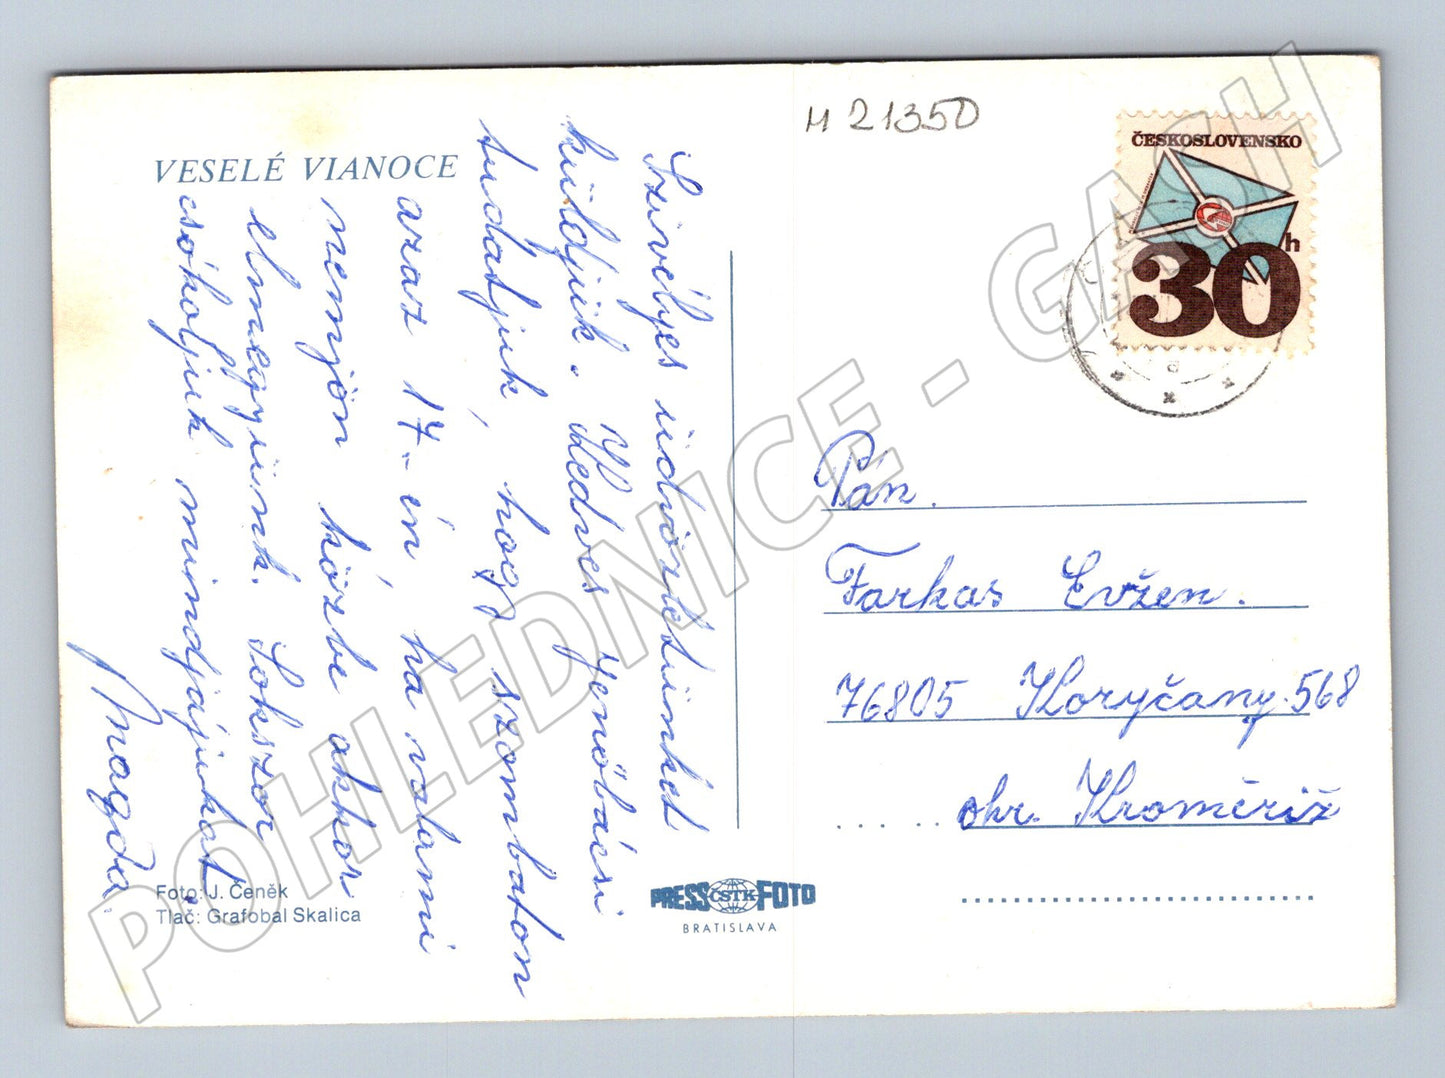 VESELÉ VIANOCE
Szivélyes üdvözletünket
küldjük. Kedves Jenőbácsi
tudatjuk, hogy szombaton
azaz 17-én, ha valami
nemjön közbe akkor
elmegyünk. Sokszor
csókoljuk mindjájukat.
Magda.
Foto: J. Čeněk
Tlač: Grafobal Skalica
PRESS ČSTK FOTO
BRATISLAVA
M 21350
ČESKOSLOVENSKO
30 h
Pán.
Farkas Evžen.
76805 Koryčany 568
okr. Kroměřiž
POHLEDNICE - GASH